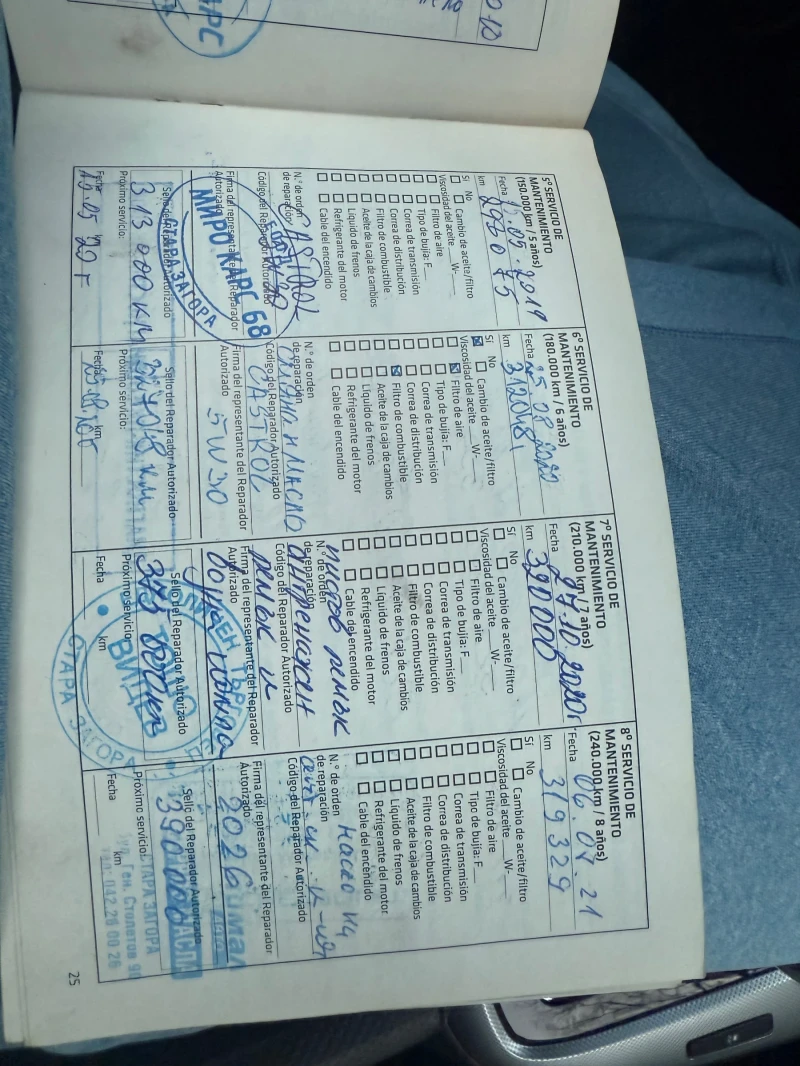 5º SERVICIO DE
MANTENIMIENTO
(150.000 km / 5 años)
Fecha 2019
km
Sí No
Cambio de aceite/filtro
Viscosidad del aceite ___W-___
Filtro de aire
Tipo de bujía: F___
Correa de transmisión
Correa de distribución
Filtro de combustible
Aceite de la caja de cambios
Líquido de frenos
Refrigerante del motor
Cable del encendido
N.º de orden
de reparación
CASTROL
Código del Reparador Autorizado
Firma del representante del Reparador
Autorizado
МИРО КАРС 68
СТАРА ЗАГОРА
Sello del Reparador Autorizado
313 000 KM
Próximo servicio:
km
Fecha
6º SERVICIO DE
MANTENIMIENTO
(180.000 km / 6 años)
Fecha 08 2020
km 312048
Sí No
Cambio de aceite/filtro
Viscosidad del aceite ___W-___
Filtro de aire
Tipo de bujía: F___
Correa de transmisión
Correa de distribución
Filtro de combustible
Aceite de la caja de cambios
Líquido de frenos
Refrigerante del motor
Cable del encendido
N.º de orden
de reparación
МАСЛО
Código del Reparador Autorizado
CASTROL
Firma del representante del Reparador
Autorizado
5W30
Sello del Reparador Autorizado
Próximo servicio:
km
Fecha
7º SERVICIO DE
MANTENIMIENTO
(210.000 km / 7 años)
Fecha 27.10.2020г
km 320000
Sí No
Cambio de aceite/filtro
Viscosidad del aceite ___W-___
Filtro de aire
Tipo de bujía: F___
Correa de transmisión
Correa de distribución
Filtro de combustible
Aceite de la caja de cambios
Líquido de frenos
Refrigerante del motor
Cable del encendido
ремък
N.º de orden
de reparación
Código del Reparador Autorizado
ремък и
Firma del representante del Reparador
Autorizado
помпа
Sello del Reparador Autorizado
СТАРА ЗАГОРА
Próximo servicio:
km
Fecha
8º SERVICIO DE
MANTENIMIENTO
(240.000 km / 8 años)
Fecha 21
km 319329
Sí No
Cambio de aceite/filtro
Viscosidad del aceite ___W-___
Filtro de aire
Tipo de bujía: F___
Correa de transmisión
Correa de distribución
Filtro de combustible
Aceite de la caja de cambios
Líquido de frenos
Refrigerante del motor
Cable del encendido
N.º de orden
de reparación
Código del Reparador Autorizado
Firma del representante del Reparador
Autorizado
2026
Sello del Reparador Autorizado
390 000
Próximo servicio:
СТАРА ЗАГОРА
km
Ген. Столетов
Fecha
25